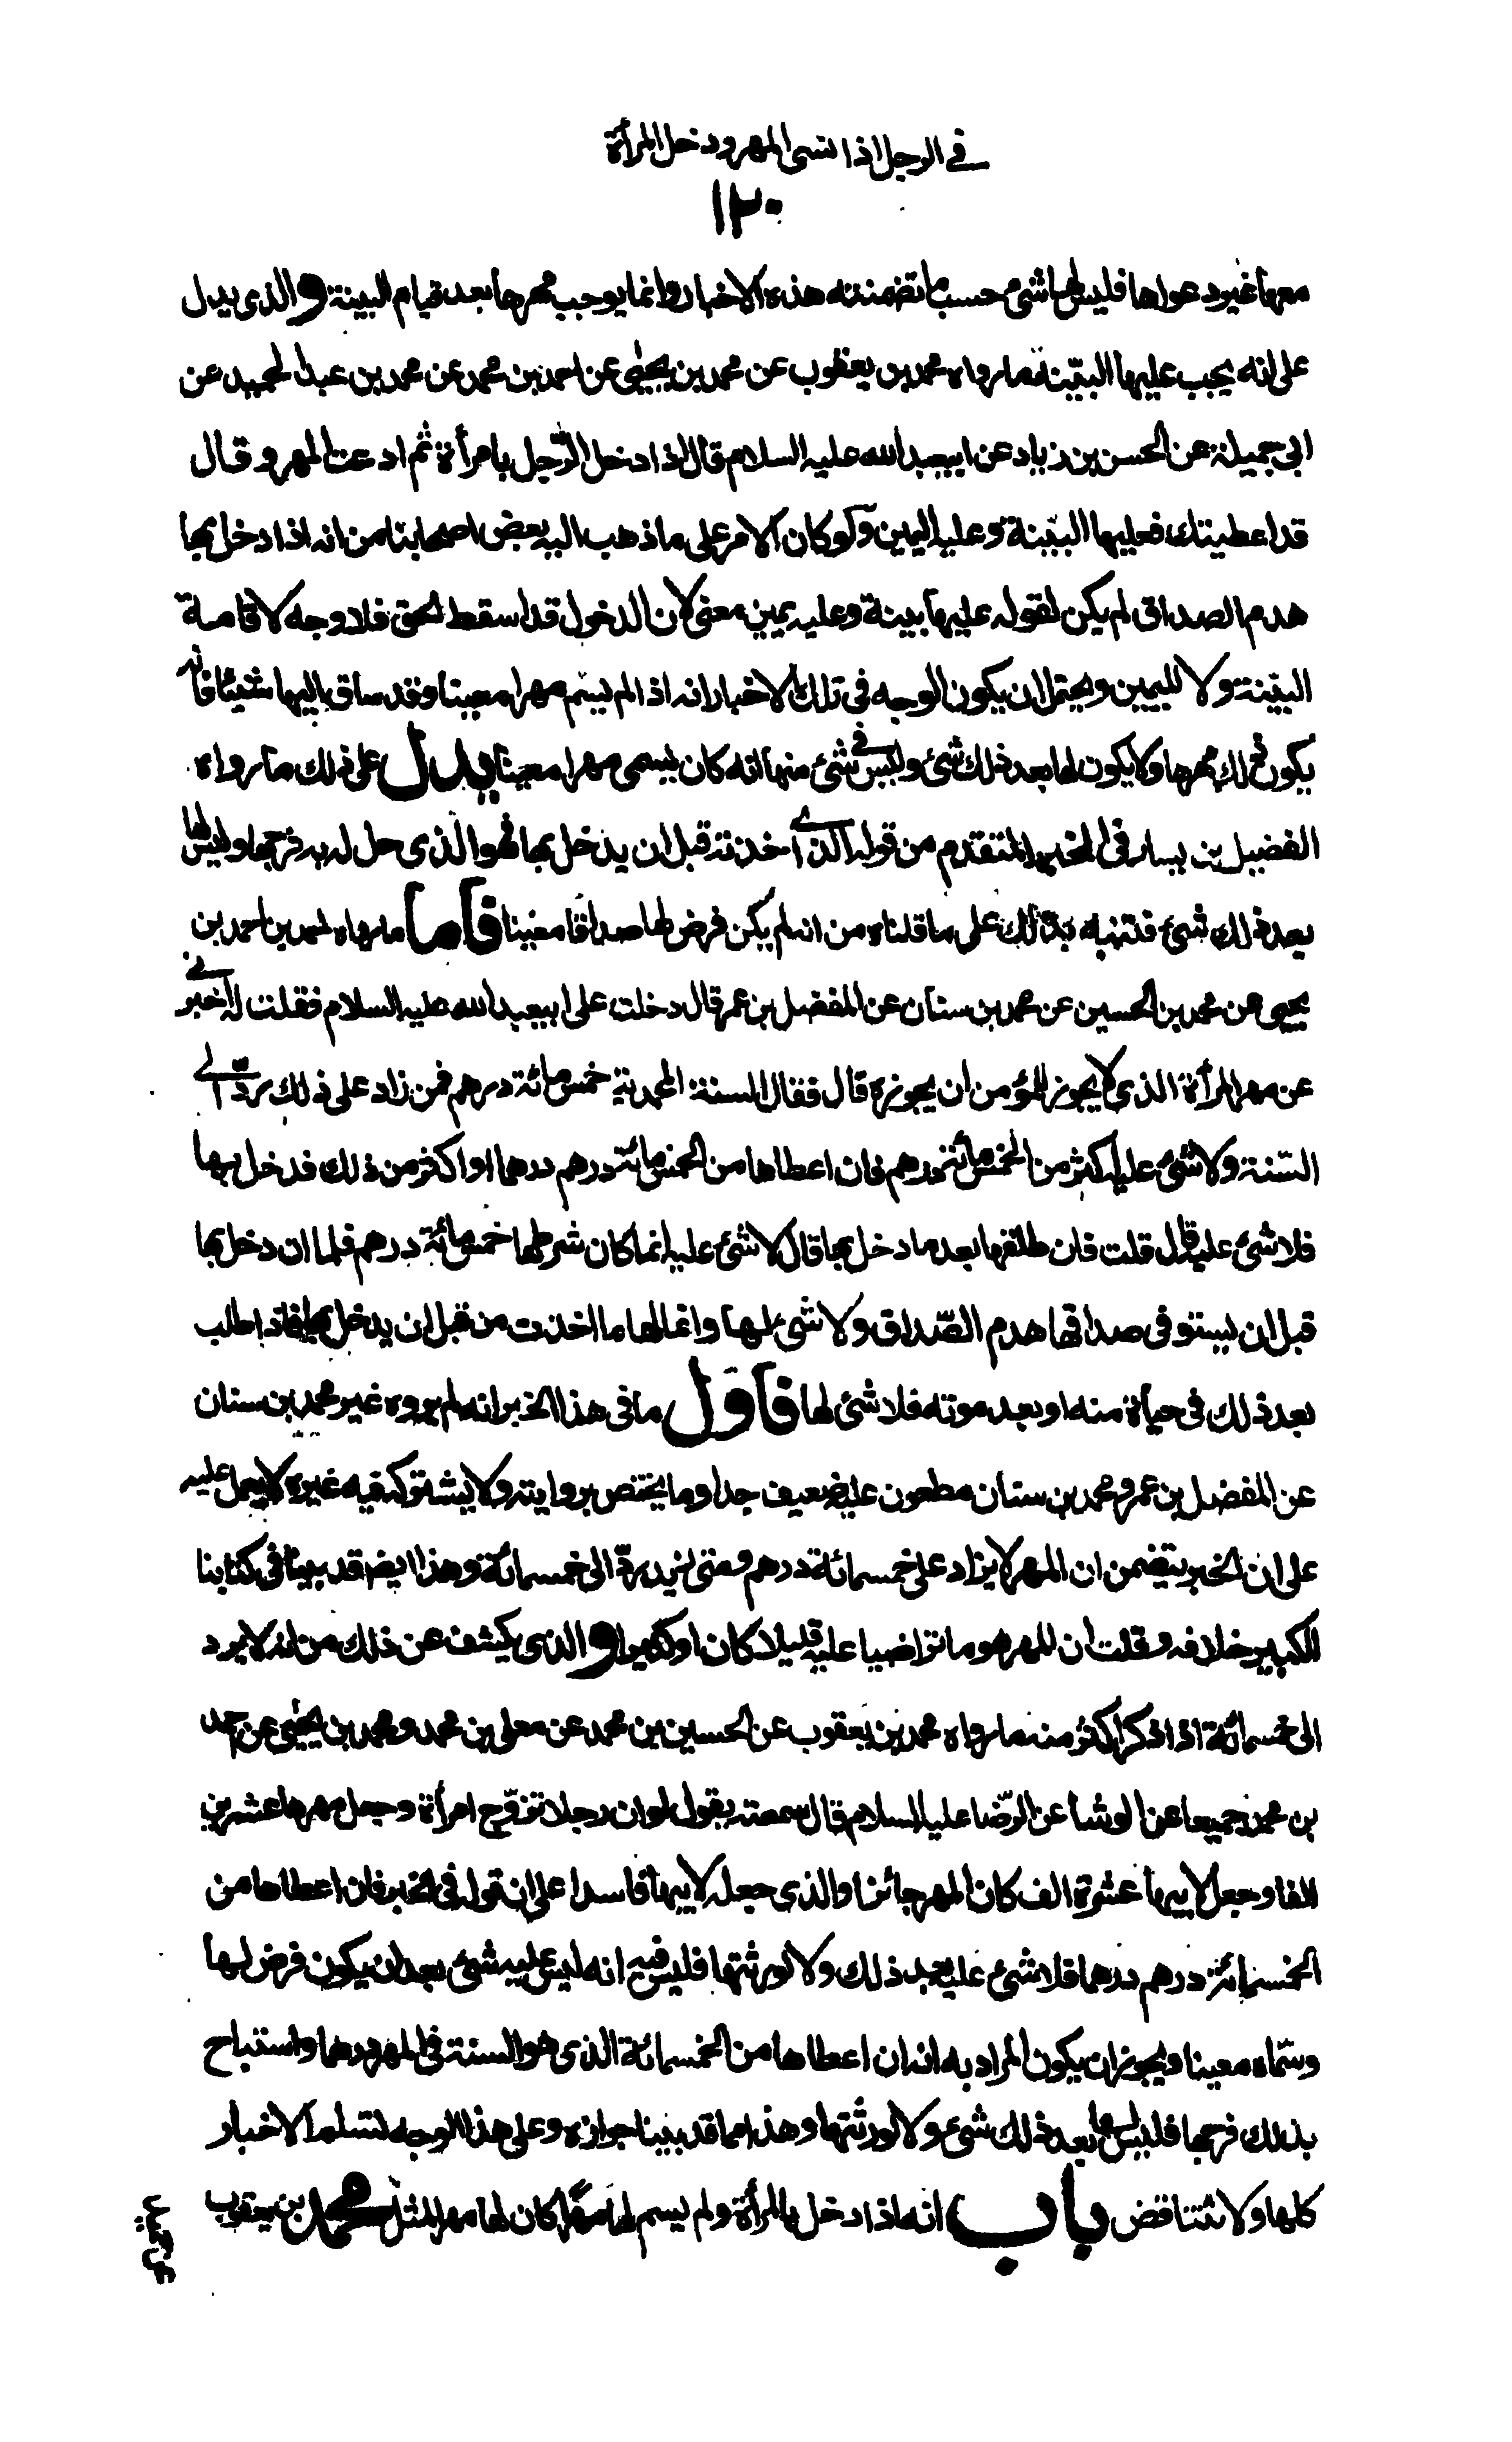 في الرجل اذا سمى المهر ودخل المرأة
١٢٠
معها غير دعواها فليس لها شئ حسب ما تضمنته هذه الاخبار وانما يوجب مهرها بعد قيام البينة والذى يدل
على انه يجب عليها البيّنة ما رواه محمد بن يعقوب عن محمد بن يحيى عن احمد بن محمد عن محمد بن عبد الحميد عن
ابى جميلة عن الحسن بن زياد عن ابيعبدالله عليه السلام قال اذا دخل الرّجل بامرأة ثم ادعت المهر وقال
قد اعطيتك فعليها البيّنة وعليه اليمين ولو كان الامر على ما ذهب اليه بعض اصحابنا من انه اذا دخل بها
هدم الصداق لم يكن لقوله عليها بينة وعليه يمين معنى لان الدخول قد اسقط الحق فلا وجه لاقامة
البيّنة ولا لليمين ويحتمل ان يكون الوجه في تلك الاخبار انه اذا لم يسم مهرا معينا وقد ساق اليها شيئا فانه
يكون ذلك مهرها ولا يكون لها بعد ذلك شئ وليس في شئ منها انه كان يسمى مهرا معينا يدل على ذلك ما رواه
الفضيل بن يسار في الخبر المتقدم من قوله الذي اخذته قبل ان يدخل بها فهو الذى حل له به فرجها وليس لها
بعد ذلك شئ فتنبه بذلك على ما قلناه من انه لم يكن فرض لها صداقا معينا فاما ما رواه محمد بن احمد بن
يحيى عن محمد بن الحسين عن محمد بن سنان عن المفضل بن عمر قال دخلت على ابيعبدالله عليه السلام فقلت له اخبرني
عن مهر المرأة الذي لا يجوز للمؤمن ان يجوزه قال فقال السنة المحمدية خمس مائة درهم فمن زاد على ذلك ردّ الى
السّنة ولا شئ عليه اكثر من الخمس مائة درهم فان اعطاها من الخمس مائة درهم درهما او اكثر من ذلك فدخل بها
فلا شئ عليه قال قلت فان طلقها بعد ما دخل بها قال لا شئ عليه انما كان شرطها خمس مائة درهم فلما ان دخل بها
قبل ان يستوفى صداقها هدم الصّداق ولا شئ لها وانما لها ما اخذت من قبل ان يدخل بها فاذا طلب
بعد ذلك فى حياة منه او بعد موته فلا شئ لها فاول ما فى هذا الخبر انه لم يروه غير محمد بن سنان
عن المفضل بن عمر ومحمد بن سنان مطعون عليه ضعيف جدا وما يختص بروايته ولا يشاركه فيه غيره لا يعمل عليه
على ان الخبر يتضمن ان المهر لا يزاد على خمسمائة درهم ومتى زيد ردّ الى خمسمائة وهذا ايضا قد بينا فى كتابنا
الكبير خلافه وقلت ان المهر هو ما تراضيا عليه قليلا كان او كثيرا والذى يكشف عن ذلك من انه لا يرد
الى خمسمائة اذا ذكر اكثر منه ما رواه محمد بن يعقوب عن الحسين بن محمد عن معلى بن محمد ومحمد بن يحيى عن احمد
بن محمد جميعا عن الوشا عن الرّضا عليه السلام قال سمعته يقول لو ان رجلا تزوّج امرأة وجعل مهرها عشرين
الفا وجعل لابيها عشرة الف كان المهر جائزا والذى جعله لابيها فاسدا على ان قوله فى الخبر فان اعطاها من
الخمسمائة درهم درهما فلا شئ عليه بعد ذلك ولا لورثتها فليس فيه انه ليس عليه شئ بعد ان يكون فرض لها
وسّماه معينا ويجوز ان يكون المراد به انه ان اعطاها من الخمسمائة الذى هو السنة فى المهر درهما واستباح
بذلك فرجها فليس لها بعد ذلك شئ ولا لورثتها وهذا مما قد بينا جوازه وعلى هذا الوجه لتسلم الاخبار
كلها ولا تتناقض باب انه اذا دخل بالمرأة ولم يسم لها مهرا كان لها مهر المثل محمد بن يعقوب